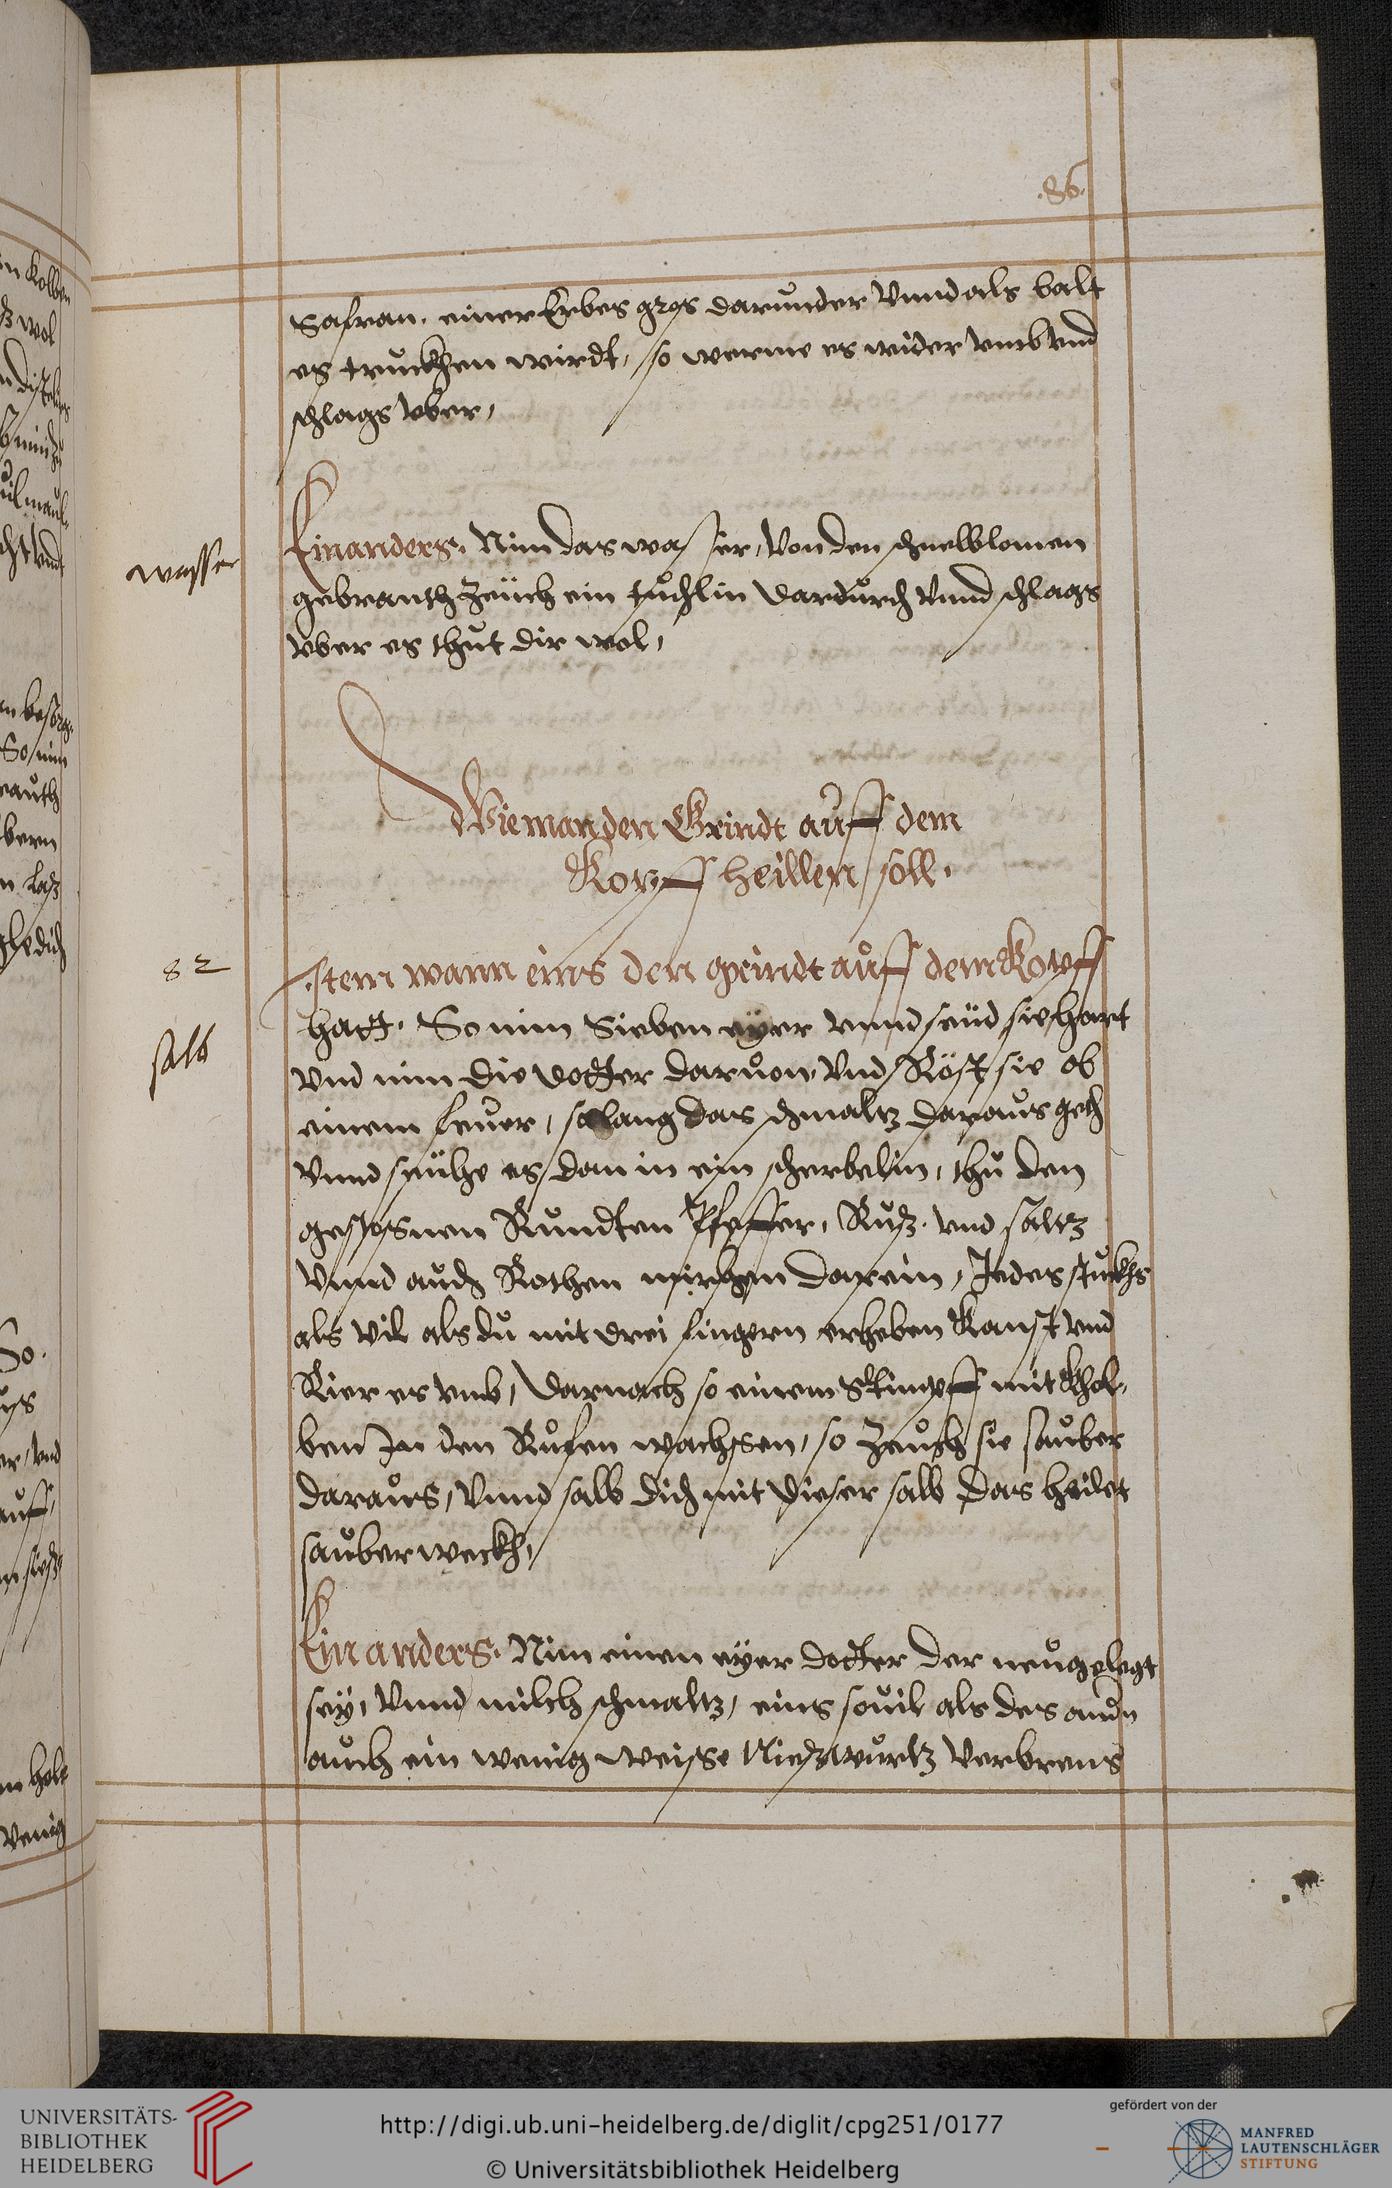 .86.
Safran. einer Erbes gros darunder Vnnd als balt
es truckhen wirdt, so werme es wider vmb vnd
schlags vber,
wasser
Ein anders. Nim das wasser, von den schnelblomen
gebranth Zeuch ein tuchlin dardurch Vnnd schlags
vber es thut dir wol,
Wie man den Grindt auff dem
Kopff heillen soll.
82
Item wann eins den grindt auff dem Kopff
hatt. So nim Sieben eÿer vnnd seüd sie hart
salb
Vnd nim die dotter daruon Vnd Röst sie ob
einem feuer, so lang das schmaltz daraus geth
Vnnd seühe es dan in ein scherbelin, thu den
gestosnen Rundten Pfeffer, Ruß. vnd saltz
Vnnd auch Rothen mirhen darein, Jedes stuckhs
als vil als du mit drei fingern erheben Kanst vnd
Rier es vmb, darnach so einem Stimpff mit Khol-
ben In den Rufen wachssen, so zeuch sie sauber
daraus, Vnnd salb dich mit dieser salb Das heilet
sauber weckh,
Ein anders. Nim einen eÿer dotter der neugelegt
seÿ, Vnnd milch schmaltz, eins souil als des andn
auch ein wenig weisse Nieswurtz verbrens
UNIVERSITÄTS-
BIBLIOTHEK
HEIDELBERG
http://digi.ub.uni-heidelberg.de/diglit/cpg251/0177
© Universitätsbibliothek Heidelberg
gefördert von der
MANFRED
LAUTENSCHLÄGER
STIFTUNG